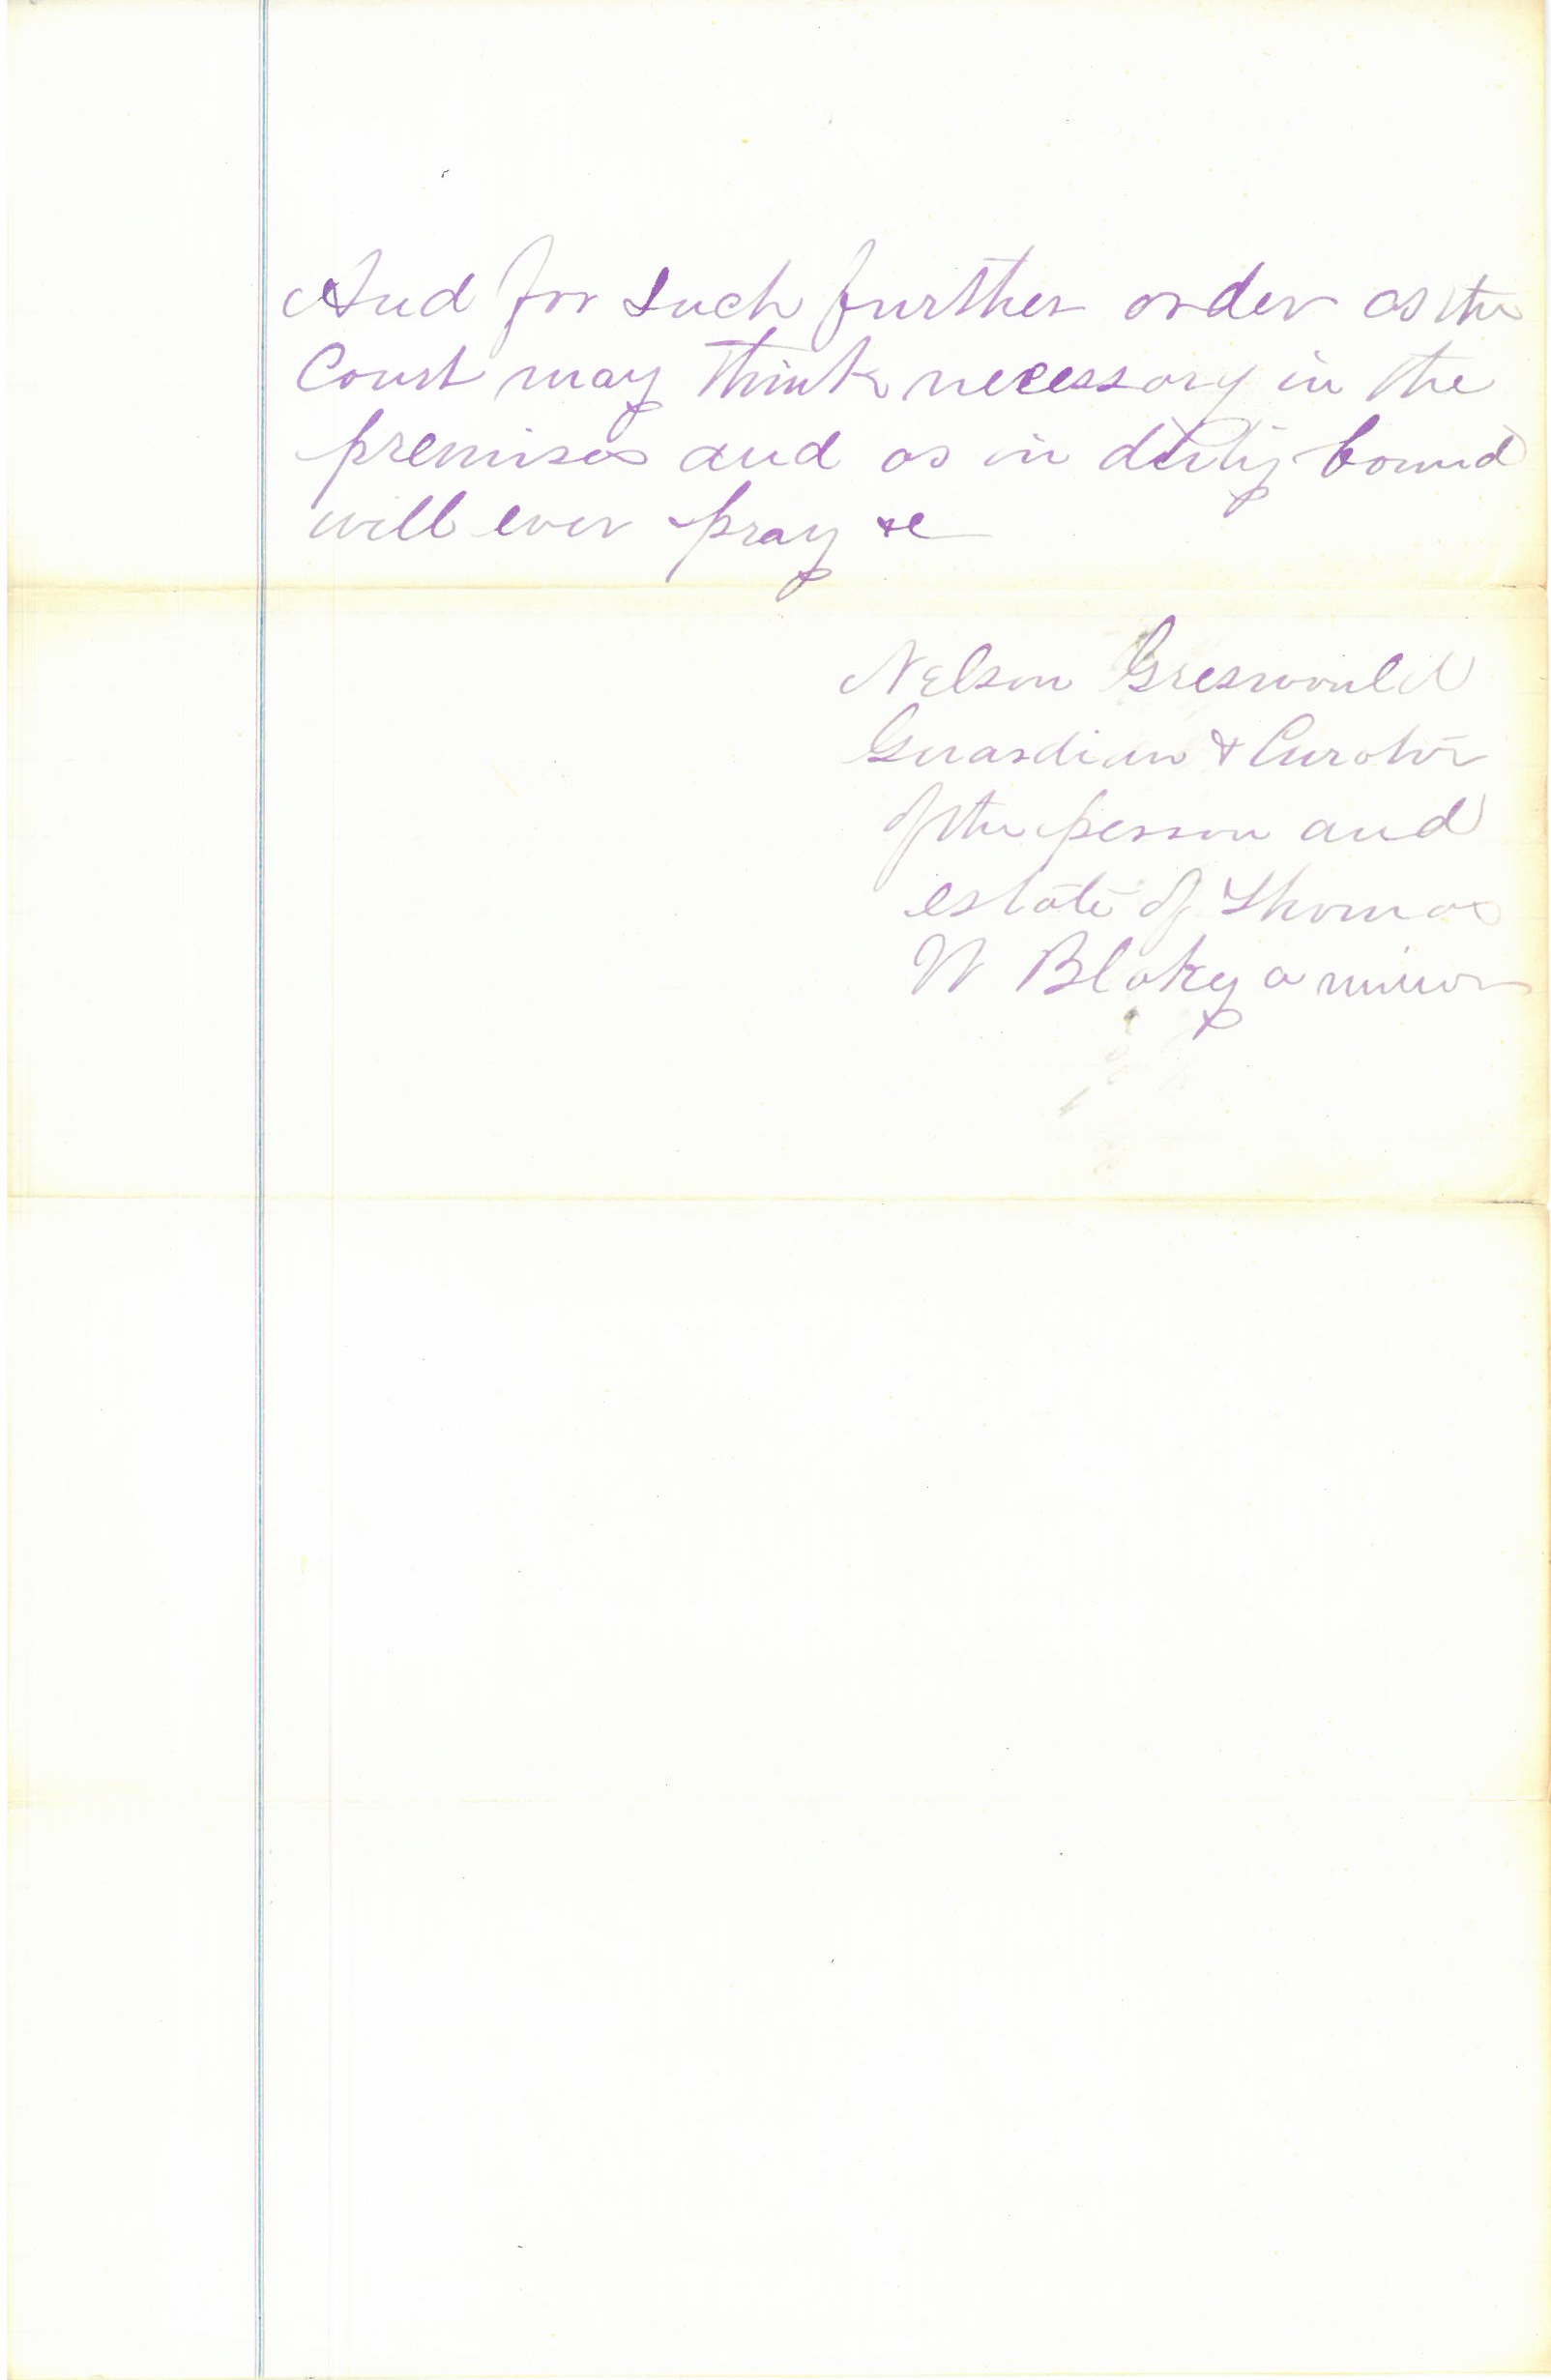 And for such further order as the
Court may think necessary in the
premises and as in duty bound
will ever pray &c
Nelson Greswould
Guardian & Curator
of the person and
estate of Thomas
W Blakey a minor